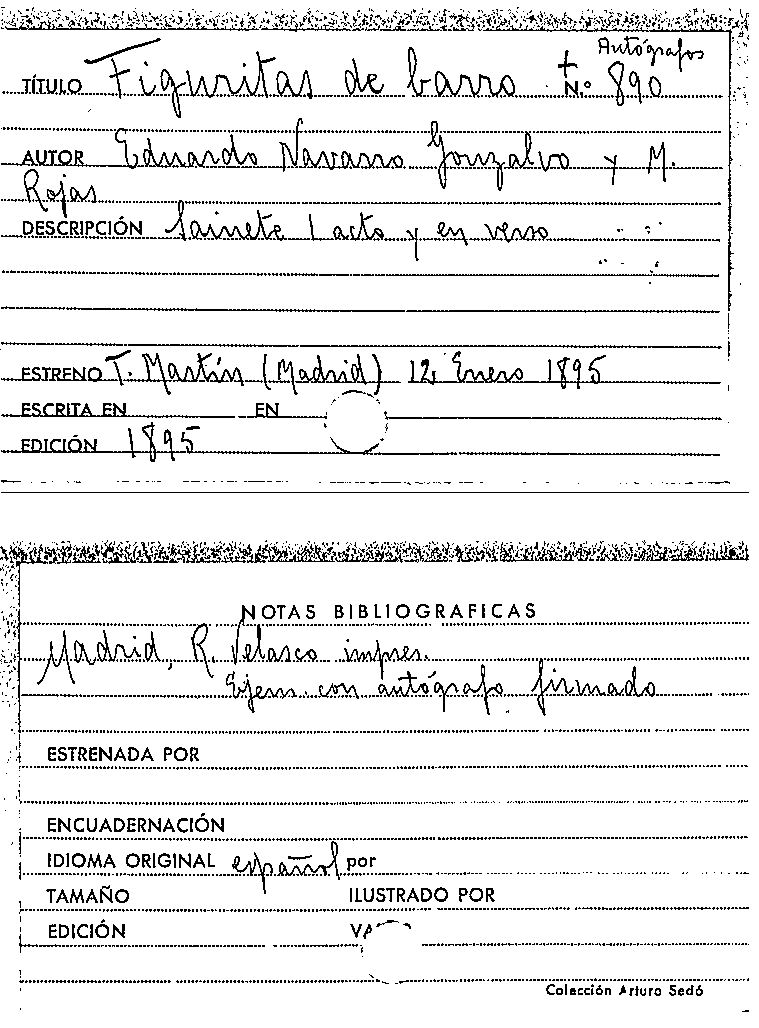 Autógrafos
TÍTULO Figuritas de barro + N.º 890
AUTOR Eduardo Navarro Gonzalvo y M.
Rojas
DESCRIPCIÓN Sainete 1 acto y en verso
ESTRENO T. Martín (Madrid) 12, Enero 1895
ESCRITA EN EN
EDICIÓN 1895
NOTAS BIBLIOGRAFICAS
Madrid, R. Velasco impres.
Ejem. con autógrafo firmado
ESTRENADA POR
ENCUADERNACIÓN
IDIOMA ORIGINAL español por
TAMAÑO ILUSTRADO POR
EDICIÓN
Colección Arturo Sedó